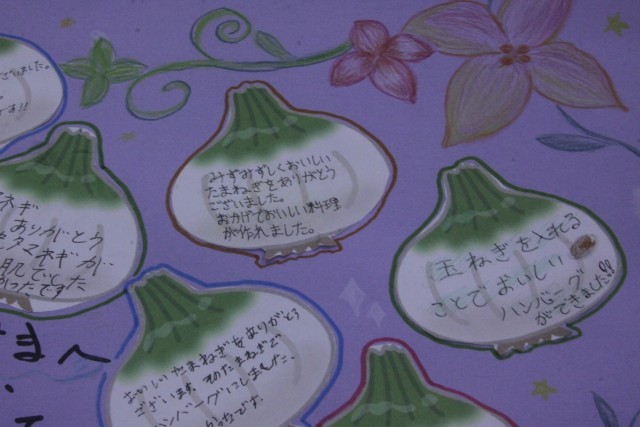 みずみずしくおいしい
たまねぎをありがとう
ございました。
おかげでおいしい料理
が作れました。
玉ねぎを入れる
ことでおいしい
ハンバーグ
ができました!!
ネギ
ありがとう
タマネギが
でした
かったです
おいしいたまねぎをありがとう
ございます。そのたまねぎで
ハンバーグにしました。
かったです。
さまへ